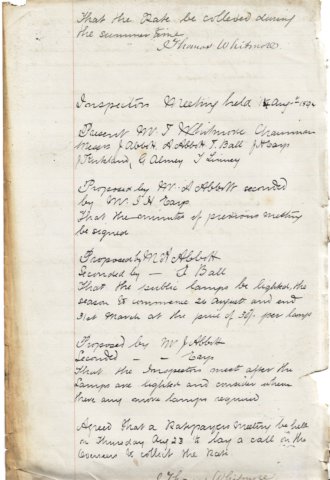 That the Rate be collected during
the summer time
Thomas Whitmore
Inspectors Meeting held Augst
Present Mr T Whitmore Chairman
Messrs J Abbott A Abbott T. Ball J H Earp
J Kirkland, G Almey T Linney
Proposed by Mr A Abbott seconded
by Mr J H Earp
That the minutes of previous meeting
be signed
Proposed by Mr A Abbott
Seconded by — Ball
That the public lamps be lighted, the
season to commence 20 August and end
31st March at the price of per lamp
Proposed by Mr J Abbott
Seconded - - Earp
That the Inspectors meet after the
lamps are lighted and consider where
there any more lamps required
Agreed that a Ratepayers meeting be held
on Thursday Aug 23 to lay a call on the
Overseers to collect the Rate
Thomas Whitmore